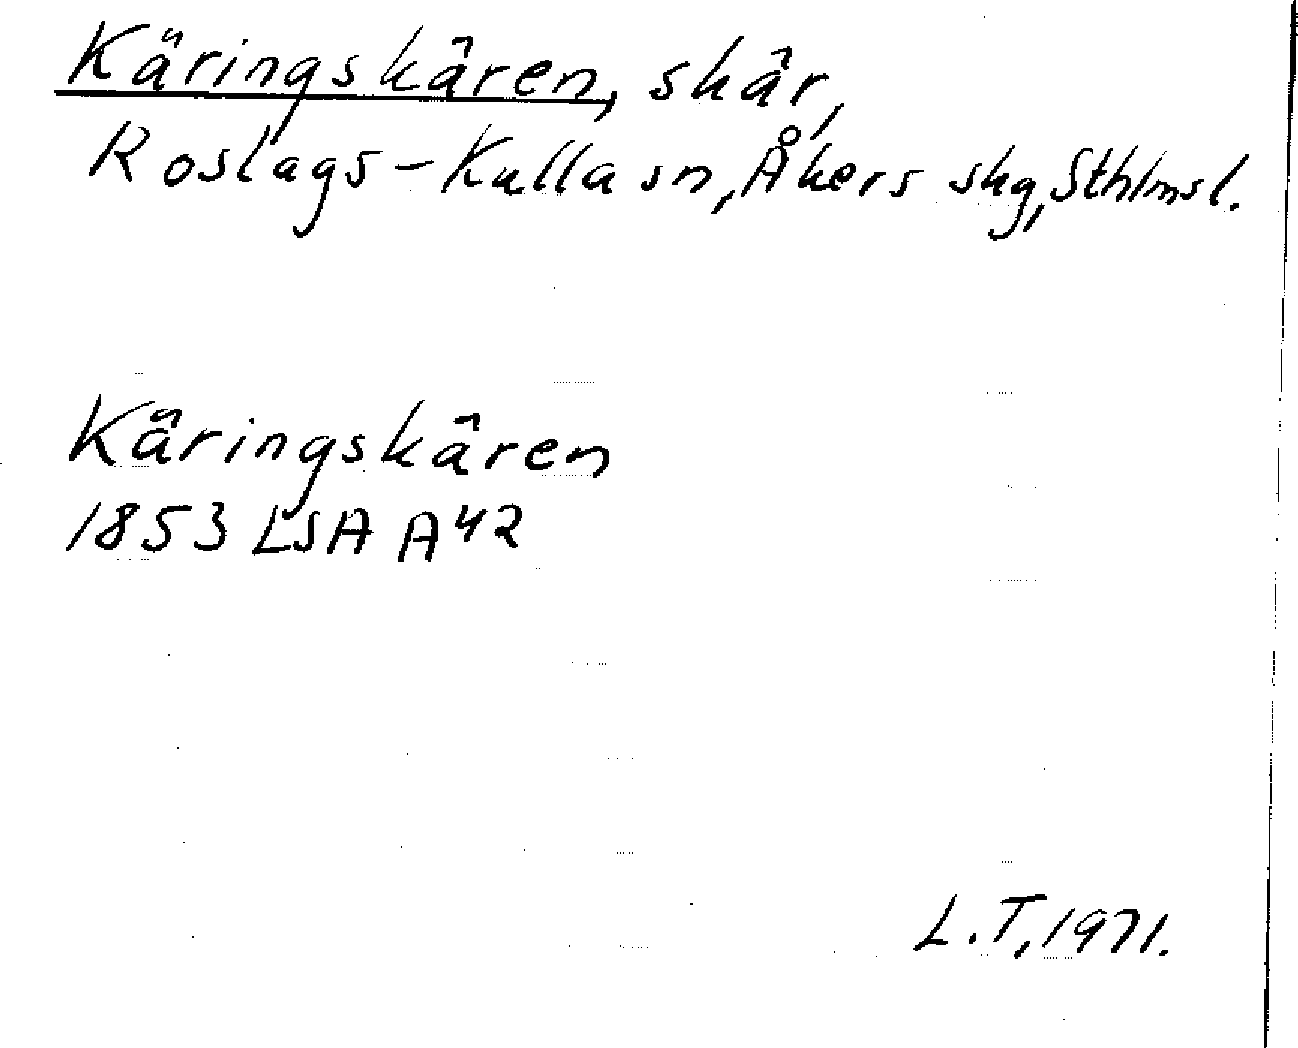 Käringskären, skär,
Roslags-Kulla sn, Åkers skg, Sthlmsl.
Käringskären
1853 LSA A42
L.T, 1971.